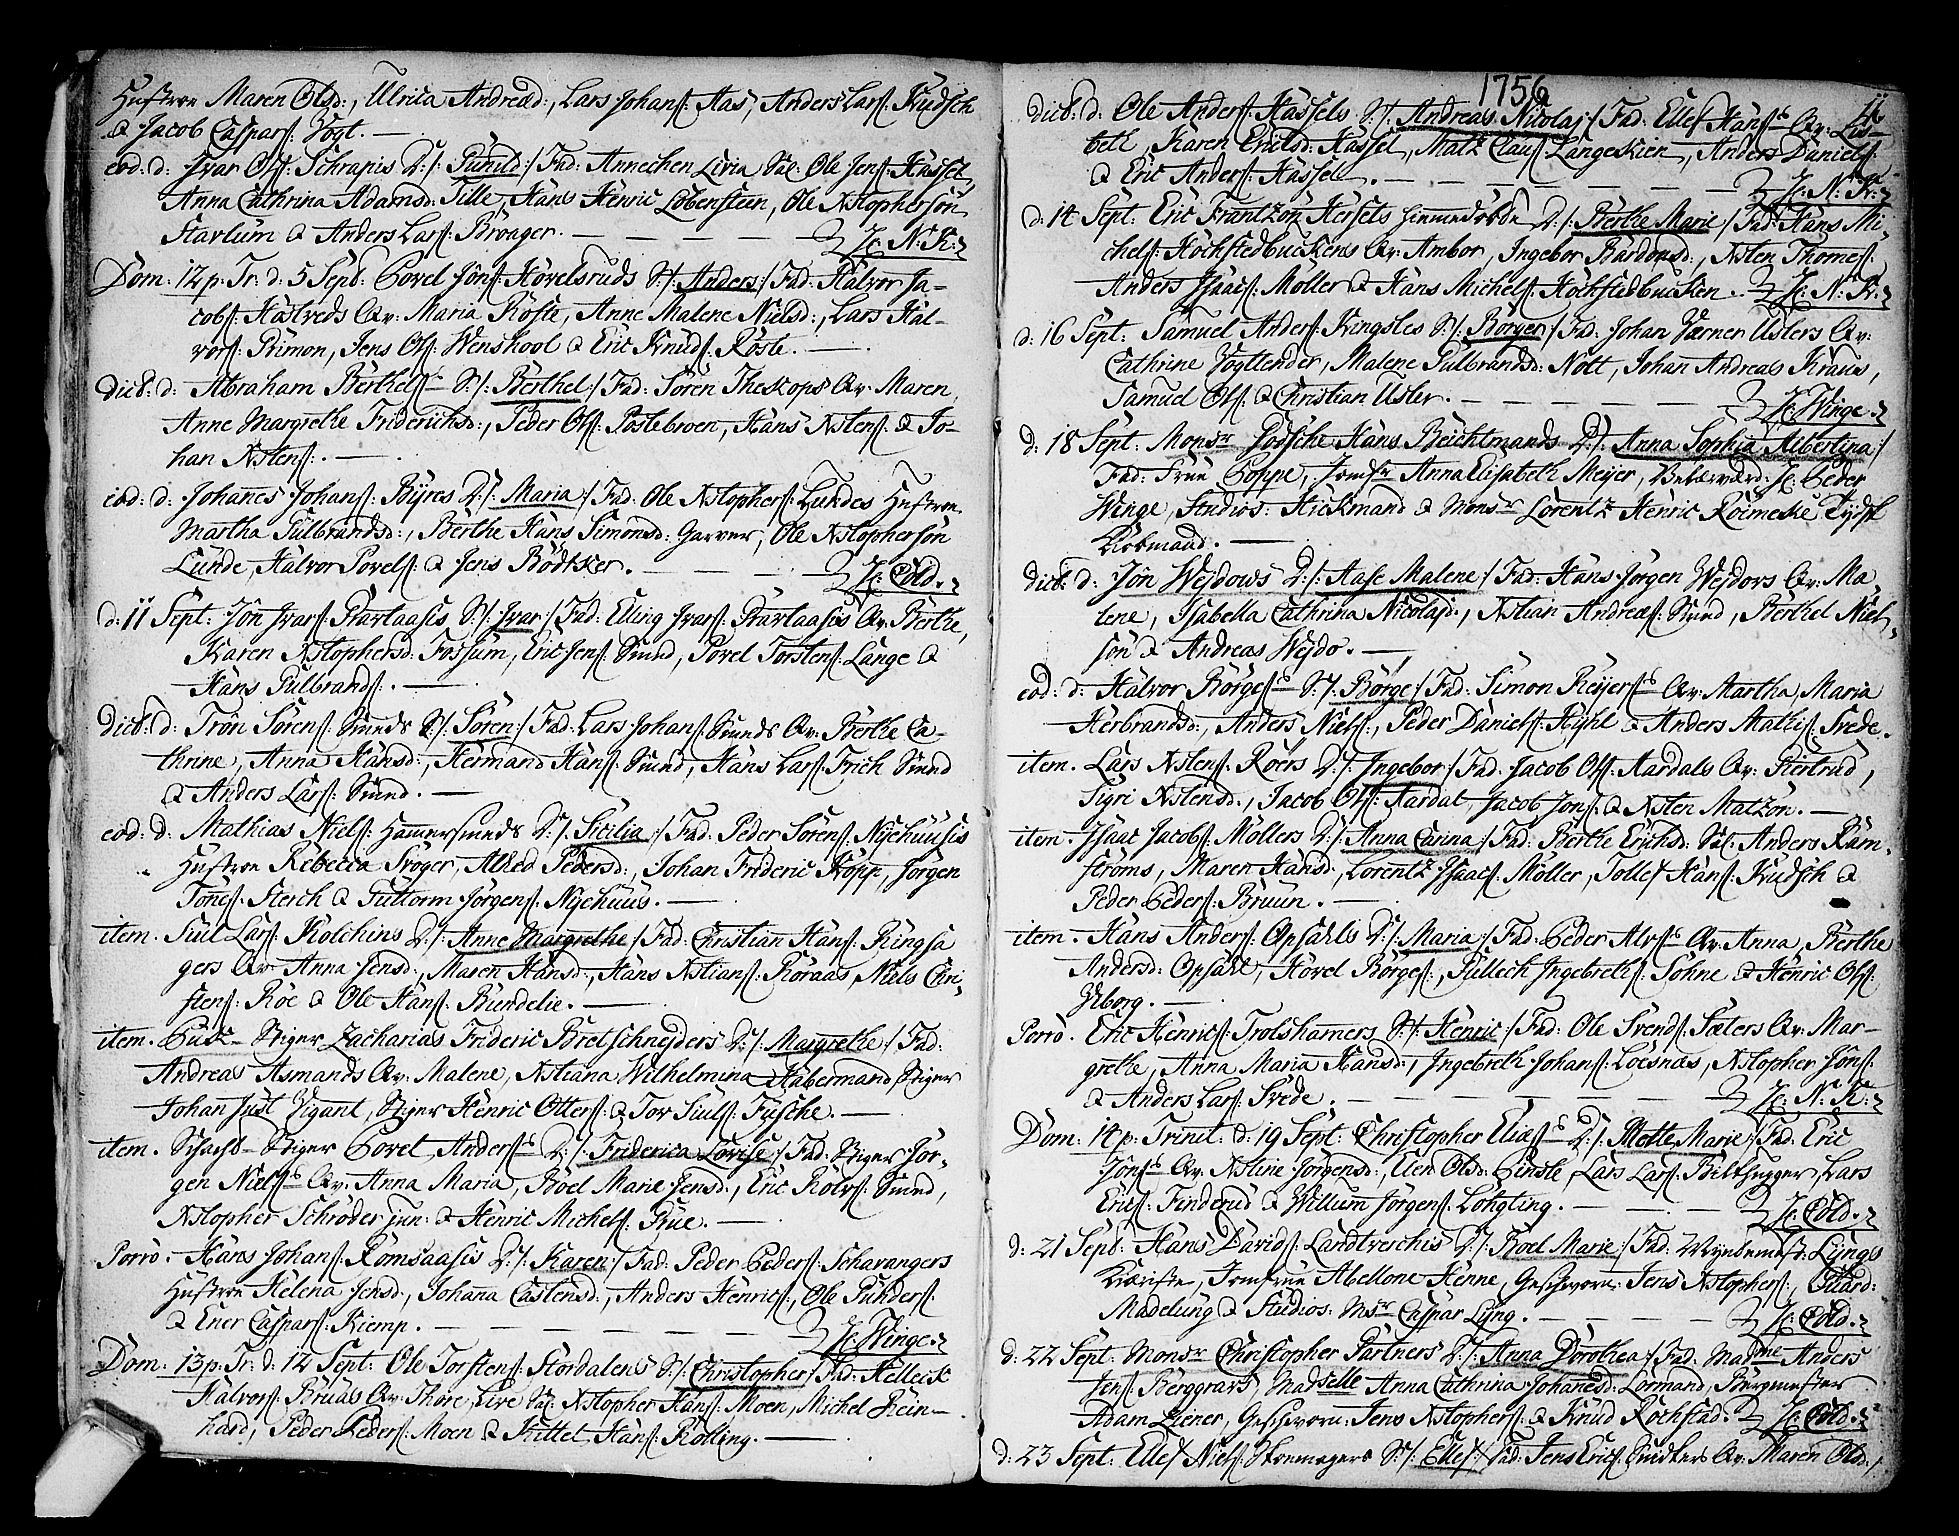 Hustroe Maren Olsd:, Ulrica Andreæd:, Lars Johans: Aas, Anders Lars: Kudsch
& Jacob Caspars: Vogt. —
eod: d: Ivar Ols: Schrapis D:/: Gunild :/ Fad: Annechen Livia Sal: Ole Jens: Hassel,
Anna Cathrina Adamsd: Tille, Hans Henric Løbensteen, Ole Xstophersøn
Starlum & Anders Lars: Broager. — H: N: K:
Dom: 12 p. Tr: d: 5 Sept: Povel Jøns: Hovelsruds S:/: Anders :/ Fad: Halvor Ja-
cobs: Hastveds Qv: Maria Røste, Anne Malene Nielsd:, Lars Hal-
vors: Primon, Jens Ols: Wenskool & Eric Knuds: Røste. —
dict: d: Abraham Berthels: S:/: Berthel :/ Fad: Søren Theskops Qv: Maren,
Anne Margrethe Friderichsd:, Peder Ols: Postebroen, Hans Xstens: & Jo-
han Xstens: —
eod: d: Johanes Johans: Byres D:/: Maria :/ Fad: Ole Xstophers: Lundes Hustroe
Martha Gulbrandsd:, Berthe Hans Simonsd: Garver, Ole Xstophersøn
Lunde, Halvor Povels: & Jens Bødtker. — H: Cold.
d: 11 Sept: Jøn Ivars: Skartaasis S:/: Ivar :/ Fad: Elling Ivars: Skartaasis Qv: Berthe,
Karen Xstophersd: Fossum, Eric Jens: Smed, Povel Torstens: Lange &
Hans Gulbrands: —
dict: d: Trøn Sørens: Smeds S:/: Søren :/ Fad: Lars Johans: Smeds Qv: Berthe Ca-
thrine, Anna Hansd:, Hermand Hans: Smed, Hans Lars: Frich Smed
& Anders Lars: Smed. —
eod: d: Mathias Niels: Hamersmeds D:/: Sicilia :/ Fad: Peder Sørens: Nyehuusis
Hustroe Rebecca Srøger, Alhed Pedersd:, Johan Frideric Kopp, Jørgen
Tønes: Sterch & Guttorm Jørgens: Nyehuus. —
item. Siul Lars: Kolchins D:/: Anne Margrethe :/ Fad: Christian Hans: Ringsa
gers Qv: Anna Jensd:, Maren Hansd:, Hans Xstians: Roraas, Niels Chri-
stens: Roe & Ole Hans: Bundelie. —
item. Stiger Zacharias Frideric Bretschneyders D:/: Margrethe :/ Fad:
Andreas Asmands Qv: Malene, Xstiana Wilhelmina Habermand, Stiger
Johan Just Vigant, Stiger Henric Otters: & Tor Siuls: Fusche. —
item. Schacht-Stiger Povel Anders: D:/: Friderica Lovise :/ Fad: Stiger Jør-
gen Niels: Qv: Anna Maria, Boel Marie Jensd:, Eric Rolvs: Smed,
Xstopher Schrøder jun: & Henric Michels: Rue. —
Porro. Hans Johans: Romsaasis D:/: Karen :/ Fad: Peder Peders: Schavangers
Hustroe Helena Jensd:, Johana Castensd:, Anders Henrics:, Ole Gunders:
& Ener Caspars: Kiemp. — H: Winge.
Dom: 13 p. Tr: d: 12 Sept: Ole Torstens: Stordalens S:/: Christopher :/ Fad: Helleck
Halvors: Bruas Qv: Thore, Live Sal: Xstopher Hans: Moen, Michel Rein-
hard, Peder Peders: Moen & Kittel Hans: Rolling. —
1756
dict: d: Ole Anders: Hassels S:/: Andreas Nicolaj :/ Fad: Ellef Hans: Qv: Lis-
beth, Karen Ericsd: Hassel, Matz Claus: Langeskien, Anders Daniels:
& Eric Anders: Hassel. — H: N: K:
d: 14 Sept: Eric Frantzøn Hersets Hiemedøbde D:/: Berthe Marie :/ Fad: Hans Mi-
chels: Hochstedbuckens Qv: Ambor, Ingebor Bardonsd:, Xsten Thomes:
Anders Isaacs: Møller & Hans Michels: Hochstedbucken. — H: N: K:
d: 16 Sept: Samuel Anders: Kingsles S:/: Børger :/ Fad: Johan Værner Uslers Qv:
Cathrine Vogtlender, Malene Gulbrandsd: Nott, Johan Andreas Kraus,
Samuel Ols: & Christian Usler. — H: Winge.
d: 18 Sept: Monsr Hans Beichtmands D:/: Anna Sophia Albertina :/
Fad: Frue Poppe, Jomfr Anna Elisabeth Meyer, Velærværd: H: Peder
Winge, Studios: Hickmand & Monsr Lorentz Henric Roimeke Tydsk
Kiøbmand. —
dict: d: Jøn Wejdows D:/: Aase Malene :/ Fad: Hans Jørgen Wejdovs Qv: Ma-
lene, Isabella Cathrina Nicolajd:, Xstian Andreæs: Smed, Berthel Niel-
søn & Andreas Wejdo. —
eod: d: Halvor Børges: S:/: Børge :/ Fad: Simon Reyers: Qv: Martha, Maria
Herbrandsd:, Anders Niels:, Peder Daniels: Hight & Anders Mathis: Srede.
item. Lars Xstens: Røers D:/: Ingebor :/ Fad: Jacob Ols: Aardals Qv: Giertrud,
Sigri Xstensd:, Jacob Ols: Aardal, Jacob Jons: & Xsten Matzøn. —
item. Isaac Jacobs: Møllers D:/: Anna Carina :/ Fad: Berthe Erichsd: Sal: Anders Ram-
strøms, Maren Hansd:, Lorentz Isaacs: Møller, Tollef Hans: Kudsch &
Peder Peders: Bruun. —
item. Hans Anders: Opsahls D:/: Maria :/ Fad: Peder Alvs: Qv: Anna, Berthe
Andersd: Opsahl, Hovel Børges:, Gullech Ingebreths: Sohne & Henric Ols:
Viborg. —
Porro. Eric Henrics: Trolshamers S:/: Henric :/ Fad: Ole Svends: Sæters Qv: Mar-
grethe, Anna Maria Hansd:, Ingebreth Johans: Loesnæs, Xstopher Jøns:
& Anders Lars: Srede. — H: N: K:
Dom: 14 p. Trinit: d: 19 Sept: Christopher Elias: D:/: Mette Marie :/ Fad: Eric
Jøns: Qv: Xstine Jørgensd:, Elen Olsd: Einste, Lars Lars: Bilthugger, Lars
Erics: Finderud & Willum Jørgens: Løngting. — H: Cold.
d: 21 Sept: Hans Davids: Landtreschis D:/: Boel Marie :/ Fad: Myntemest: Lyngs
Kiæriste, Jomfrue Abellone Henne, Geschworn: Jens Xstophers:, Guard:
Madelung & Studios: Msr Caspar Lyng. — H: Cold.
d: 22 Sept: Monsr Christopher Gartners D:/: Anna Dorothea :/ Fad: Madme Anders
Jens: Berggravs, Madselle Anna Cathrina Johanesd: Lormand, Bergmester
Adam Ziener, Geschworn: Jens Xstophers: & Knud Rochstad. H: Cold.
d: 23 Sept: Ellef Niels: Steenmagers S:/: Ellef :/ Fad: Jens Erics: Snidkers Qv: Maren Olsd:,